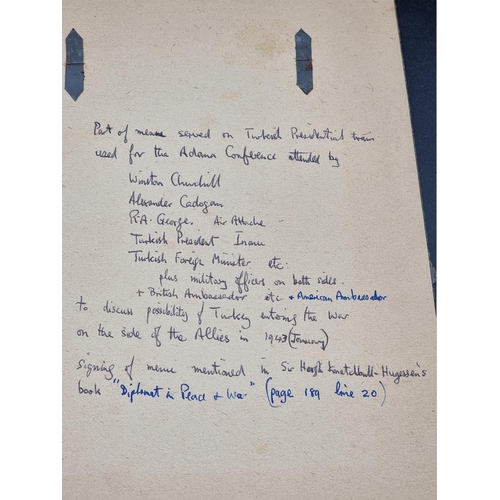 Part of menu served on Turkish Presidential train
used for the Adana Conference attended by
Winston Churchill
Alexander Cadogan
R.A. George. Air Attache
Turkish President Inonu
Turkish Foreign Minister etc.
plus military officers on both sides.
+ British Ambassador etc + American Ambassador
to discuss possibility of Turkey entering the War
on the side of the Allies in 1943 (January)
signing of menu mentioned in Sir Hugh Knatchbull-Hugessen's
book "Diplomat in Peace & War" (page 189 line 20)